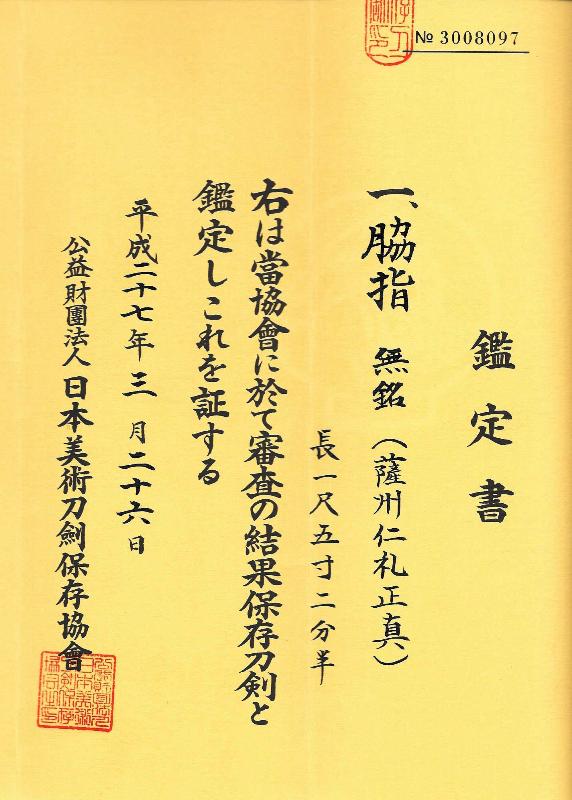 № 3008097
鑑定書
一、脇指 無銘（薩州仁礼正真）
長一尺五寸二分半
右は當協會に於て審査の結果保存刀剣と
鑑定しこれを証する
平成二十七年三月二十六日
公益財團法人日本美術刀劍保存協會